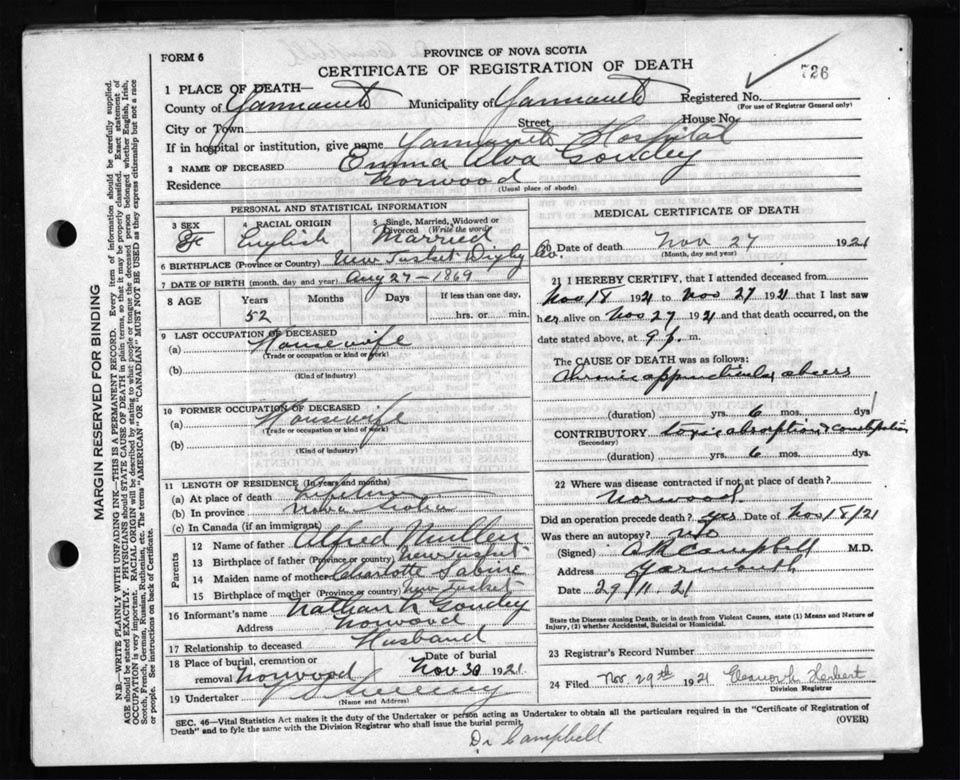 FORM 6
PROVINCE OF NOVA SCOTIA
CERTIFICATE OF REGISTRATION OF DEATH
726
1 PLACE OF DEATH—
County of Yarmouth Municipality of Yarmouth Registered No.
(For use of Registrar General only)
City or Town Street, House No.
If in hospital or institution, give name Yarmouth Hospital
2 NAME OF DECEASED Emma Alva Goudey
Residence Norwood
(Usual place of abode)
PERSONAL AND STATISTICAL INFORMATION
3 SEX 4 RACIAL ORIGIN 5 Single, Married, Widowed or Divorced (Write the word)
English Married
6 BIRTHPLACE (Province or Country) New Tusket Digby Co.
7 DATE OF BIRTH (month, day and year) Aug 27 — 1869
8 AGE Years Months Days If less than one day,
52 hrs. or min.
9 LAST OCCUPATION OF DECEASED
(a) Housewife
(Trade or occupation or kind of work)
(b)
(Kind of industry)
10 FORMER OCCUPATION OF DECEASED
(a) Housewife
(Trade or occupation or kind of work)
(b)
(Kind of industry)
11 LENGTH OF RESIDENCE (In years and months)
(a) At place of death Lifetime
(b) In province Nova Scotia
(c) In Canada (if an immigrant)
Parents
12 Name of father Alfred Mullen
13 Birthplace of father (Province or country) New Tusket
14 Maiden name of mother Charlotte Sabine
15 Birthplace of mother (Province or country) New Tusket
16 Informant's name Nathan N Goudey
Address Norwood
17 Relationship to deceased Husband
18 Place of burial, cremation or removal Norwood Date of burial Nov 30 1921
19 Undertaker Sweeny
(Name and Address)
MEDICAL CERTIFICATE OF DEATH
20 Date of death Nov 27 1921
(Month, day and year)
21 I HEREBY CERTIFY, that I attended deceased from
Nov 18 1921 to Nov 27 1921 that I last saw
her alive on Nov 27 1921 and that death occurred, on the
date stated above, at 9 p. m.
The CAUSE OF DEATH was as follows:
Chronic appendicular abcess
(duration) yrs. 6 mos. dys
CONTRIBUTORY toxic absorption & constipation
(Secondary)
(duration) yrs. 6 mos. dys.
22 Where was disease contracted if not at place of death?
Norwood
Did an operation precede death? yes Date of Nov 18/21
Was there an autopsy? No
(Signed) Campbell M.D.
Address Yarmouth
Date 29/11.21
State the Disease causing Death, or in death from Violent Causes, state (1) Means and Nature of
Injury, (2) whether Accidental, Suicidal or Homicidal.
23 Registrar's Record Number
24 Filed Nov. 29th 1921 Eleanor Herbert
Division Registrar
SEC. 46—Vital Statistics Act makes it the duty of the Undertaker or person acting as Undertaker to obtain all the particulars required in the "Certificate of Registration of
Death" and to fyle the same with the Division Registrar who shall issue the burial permit.
(OVER)
Dr Campbell
MARGIN RESERVED FOR BINDING
N.B.—WRITE PLAINLY WITH UNFADING INK—THIS IS A PERMANENT RECORD. Every item of information should be carefully supplied.
AGE should be stated EXACTLY. PHYSICIANS should STATE CAUSE OF DEATH in plain terms, so that it may be properly classified. Exact statement of
OCCUPATION is very important. RACIAL ORIGIN will be described by stating to what people or tongue the deceased person belonged whether English, Irish,
Scotch, French, German, Russian, Ruthenian, etc. The terms "AMERICAN" OR "CANADIAN" MUST NOT BE USED as they express citizenship but not a race
or people. See instructions on back of Certificate.